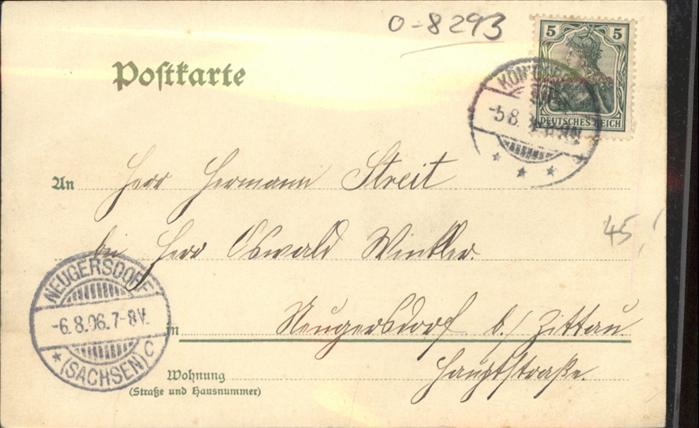 O-8293
5 5
DEUTSCHES REICH
-5.8.
Postkarte
An Herr Hermann Streit
bei Herr Oswald Winkler.
45,-
in Neugersdorf b./ Zittau
Hauptstraße.
Wohnung
(Straße und Hausnummer)
NEUGERSDORF
-6.8.06.7-8V.
* (SACHSEN) C